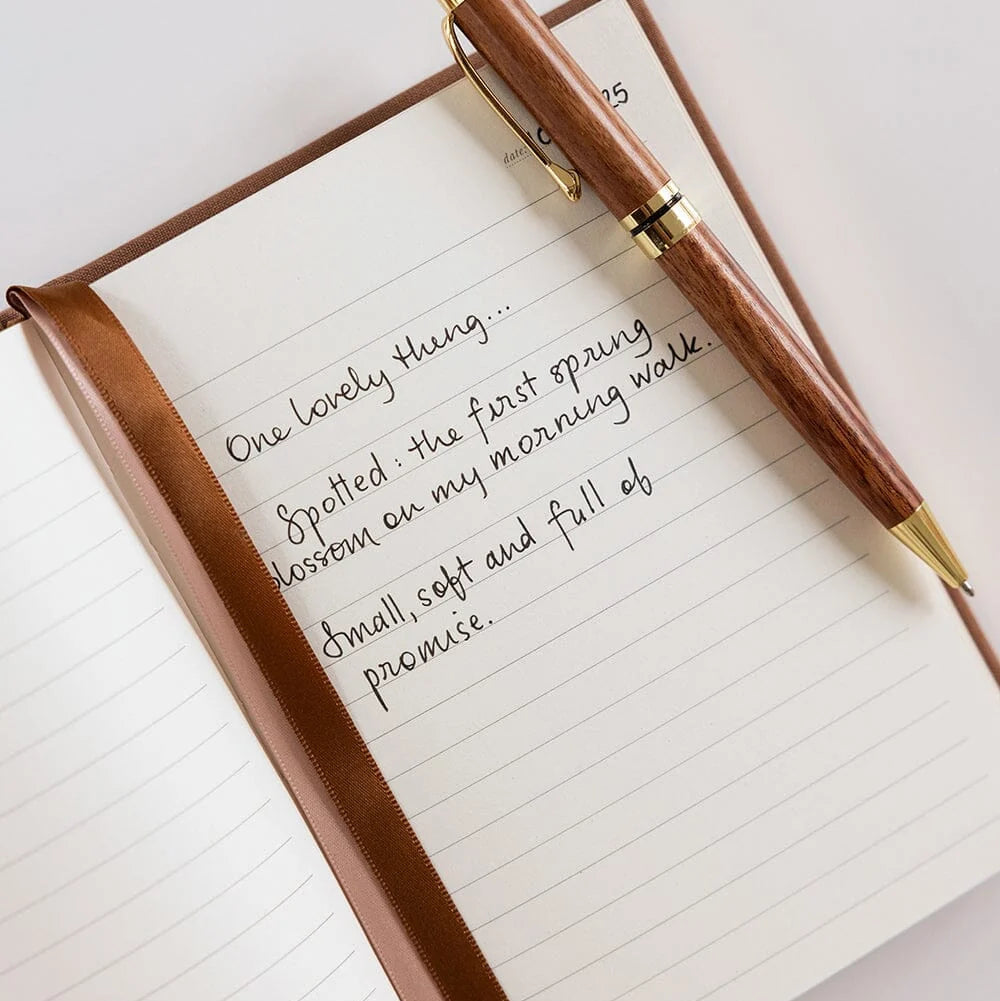 date:
25
One lovely thing...
Spotted: the first spring
blossom on my morning walk.
Small, soft and full of
promise.